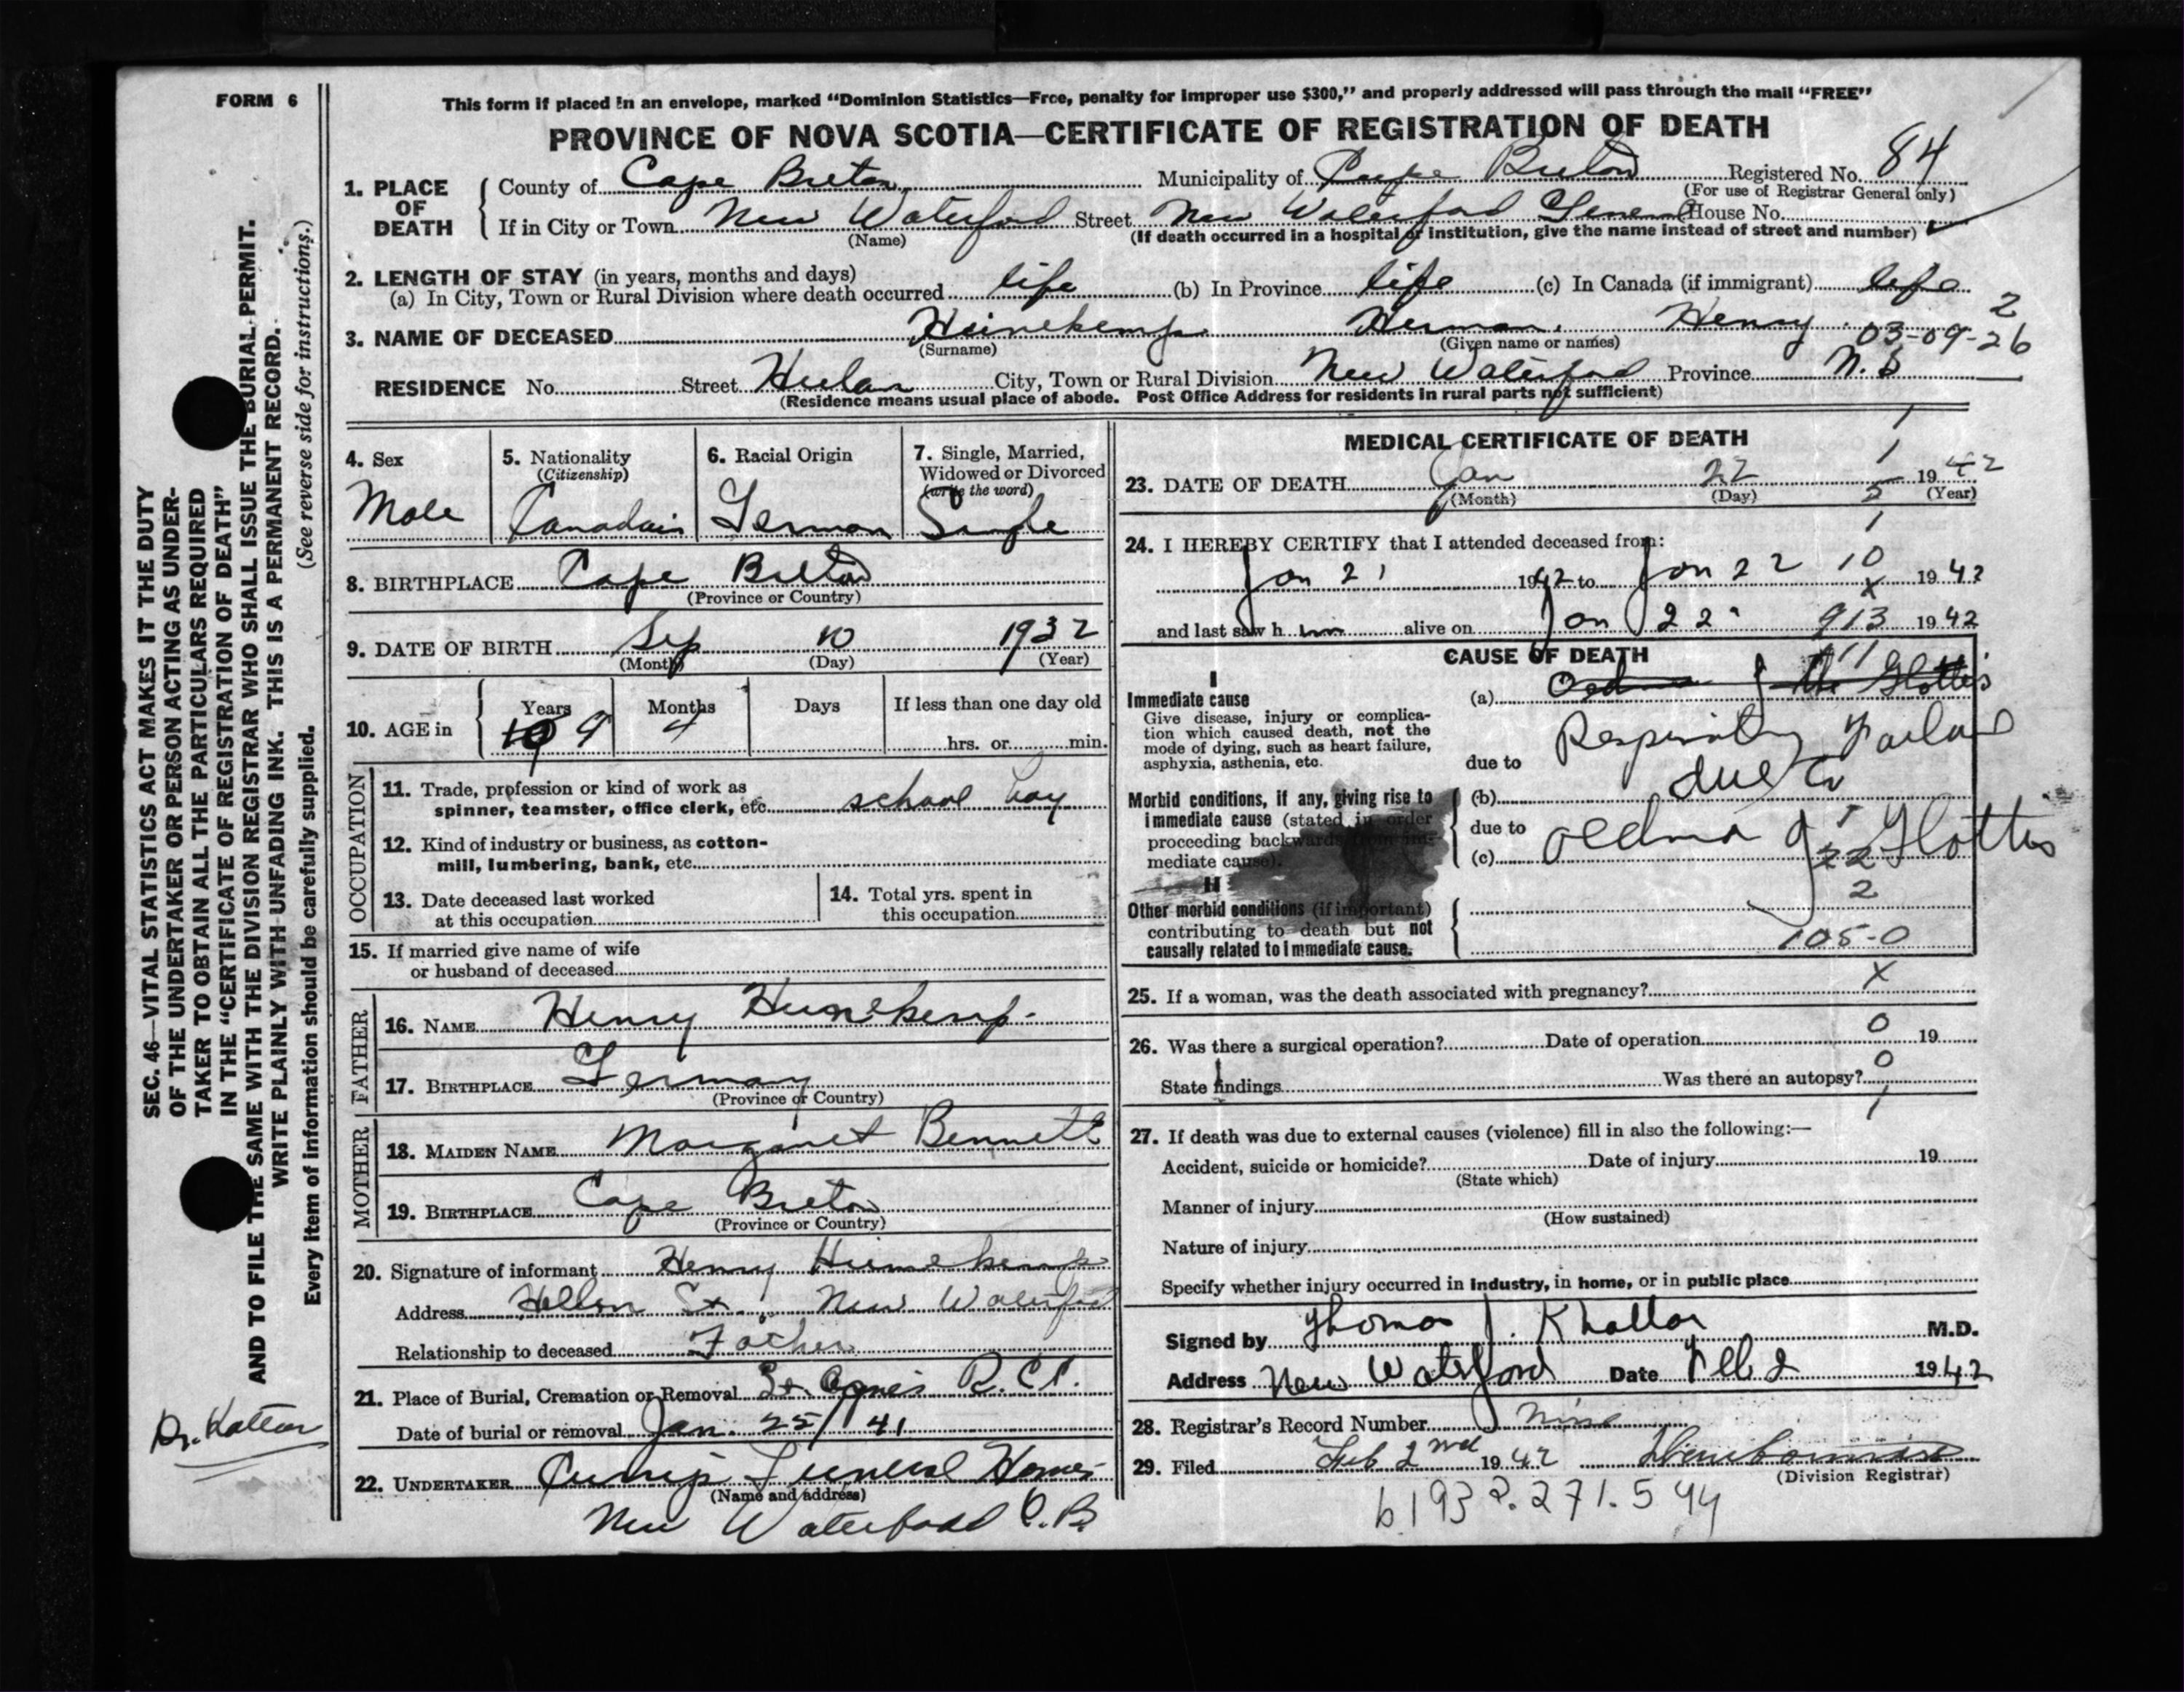 FORM 6
This form if placed in an envelope, marked "Dominion Statistics—Free, penalty for improper use $300," and properly addressed will pass through the mail "FREE"
PROVINCE OF NOVA SCOTIA—CERTIFICATE OF REGISTRATION OF DEATH
1. PLACE OF DEATH { County of Cape Breton Municipality of Cape Breton Registered No. 84
(For use of Registrar General only)
If in City or Town New Waterford Street New Waterford General House No.
(Name) (If death occurred in a hospital or institution, give the name instead of street and number)
2. LENGTH OF STAY (in years, months and days)
(a) In City, Town or Rural Division where death occurred life (b) In Province life (c) In Canada (if immigrant) life
2
3. NAME OF DECEASED Heinekemp Herman Henry 03-09-26
(Surname) (Given name or names)
RESIDENCE No. Street City, Town or Rural Division New Waterford Province N.S
(Residence means usual place of abode. Post Office Address for residents in rural parts not sufficient)
4. Sex 5. Nationality (Citizenship) 6. Racial Origin 7. Single, Married, Widowed or Divorced (write the word)
Male Canadain German Single
8. BIRTHPLACE Cape Breton
(Province or Country)
9. DATE OF BIRTH Sep 10 1932
(Month) (Day) (Year)
10. AGE in Years Months Days If less than one day old
10 9 4 hrs. or min.
OCCUPATION
11. Trade, profession or kind of work as
spinner, teamster, office clerk, etc. school boy
12. Kind of industry or business, as cotton-
mill, lumbering, bank, etc.
13. Date deceased last worked
at this occupation
14. Total yrs. spent in
this occupation
15. If married give name of wife
or husband of deceased
FATHER
16. NAME Henry Heinekemp
17. BIRTHPLACE Germany
(Province or Country)
MOTHER
18. MAIDEN NAME Margaret Bennett
19. BIRTHPLACE Cape Breton
(Province or Country)
20. Signature of informant Henry Heinekemp
Address St. New Waterford
Relationship to deceased Father
21. Place of Burial, Cremation or Removal St. Agnes R.C.
Date of burial or removal Jan. 25/41
22. UNDERTAKER Funeral Home
(Name and address)
New Waterford C.B.
MEDICAL CERTIFICATE OF DEATH
1
1
23. DATE OF DEATH Jan 22 1942
(Month) (Day) (Year)
5
1
24. I HEREBY CERTIFY that I attended deceased from:
Jan 21 1942 to Jan 22 10 1942
x
and last saw h im alive on Jan 22 913 1942
11
CAUSE OF DEATH
I
Immediate cause
Give disease, injury or complica-
tion which caused death, not the
mode of dying, such as heart failure,
asphyxia, asthenia, etc.
(a) Oedma of the Glottis
due to Respiratory Failure
Morbid conditions, if any, giving rise to
immediate cause (stated in order
proceeding backwards from im-
mediate cause).
(b) due to
due to
(c) Oedma of Glottis
1
22
2
II
Other morbid conditions (if important)
contributing to death but not
causally related to immediate cause.
105-0
x
25. If a woman, was the death associated with pregnancy?
0
26. Was there a surgical operation? Date of operation 19
0
State findings Was there an autopsy?
1
27. If death was due to external causes (violence) fill in also the following:—
Accident, suicide or homicide? Date of injury 19
(State which)
Manner of injury
(How sustained)
Nature of injury
Specify whether injury occurred in industry, in home, or in public place
Signed by Thomas J. Khattar M.D.
Address New Waterford Date Feb 2 1942
28. Registrar's Record Number nine
29. Filed Feb 2nd 1942
(Division Registrar)
b.1932.271.544
SEC. 46—VITAL STATISTICS ACT MAKES IT THE DUTY
OF THE UNDERTAKER OR PERSON ACTING AS UNDER-
TAKER TO OBTAIN ALL THE PARTICULARS REQUIRED
IN THE "CERTIFICATE OF REGISTRATION OF DEATH"
AND TO FILE THE SAME WITH THE DIVISION REGISTRAR WHO SHALL ISSUE THE BURIAL PERMIT.
WRITE PLAINLY WITH UNFADING INK. THIS IS A PERMANENT RECORD.
Every item of information should be carefully supplied. (See reverse side for instructions.)
Dr. Kattar